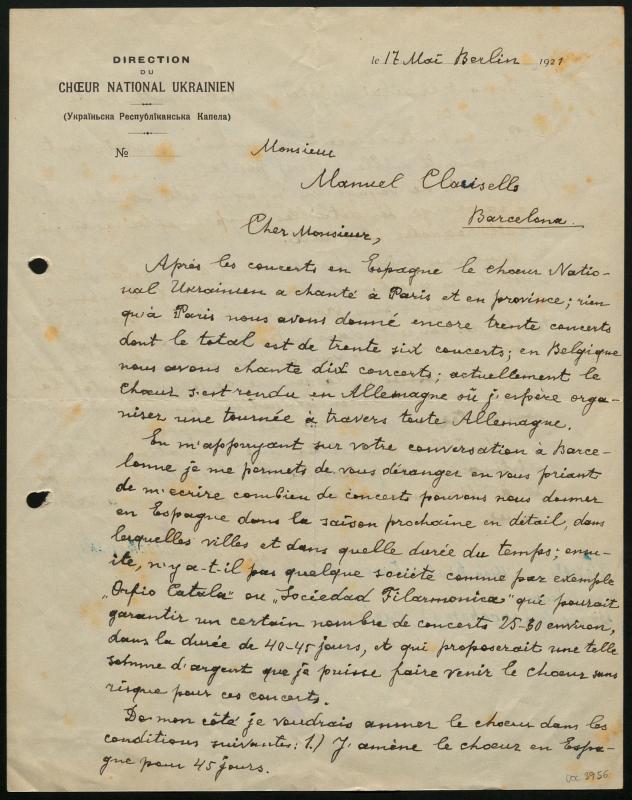 DIRECTION
DU
CHŒUR NATIONAL UKRAINIEN
(Українська Республіканська Капела)
№
le 17 Maï Berlin 1921
Monsieur
Manuel Clausells
Barcelona.
Cher Monsieur,
Après les concerts en Espagne le chœur Natio-
nal Ukrainien a chanté à Paris et en province; rien
qu'à Paris nous avons donné encore trente concerts
dont le total est de trente six concerts; en Belgique
nous avons chanté dix concerts; actuellement le
Chœur s'est rendu en Allemagne où j'espère orga-
niser une tournée à travers toute Allemagne.
En m'appuyant sur votre conversation à Barce-
lonne je me permets de vous déranger en vous priant
de m'écrire combien de concerts pouvons nous donner
en Espagne dans la saison prochaine en détail, dans
lesquelles villes et dans quelle durée du temps; ensu-
ite, n'y a-t-il pas quelque societé comme par exemple
„Orfio Catala" ou „Sociedad Filarmonica" qui pourait
garantir un certain nombre de concerts 25-30 environ,
dans la durée de 40-45 jours, et qui proposerait une telle
somme d'argent que je puisse faire venir le chœur sans
risque pour ces concerts.
De mon côté je voudrais amner le chœur dans les
conditions suivantes: 1.) J'amène le chœur en Espa-
gne pour 45 jours.
3956